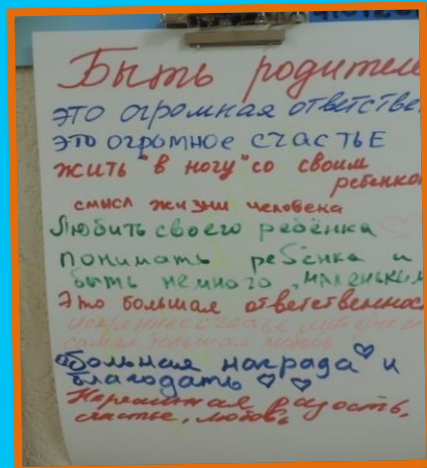 Быть родителе
это огромная ответстве
это огромное счастье
жить "в ногу" со своим
ребенко
смысл жизни человека
Любить своего ребёнка
понимать ребёнка и
быть немного "маленьким
Это большая ответственнос
самая большая любовь
большая награда и
благодать
радость,
счастье, любовь